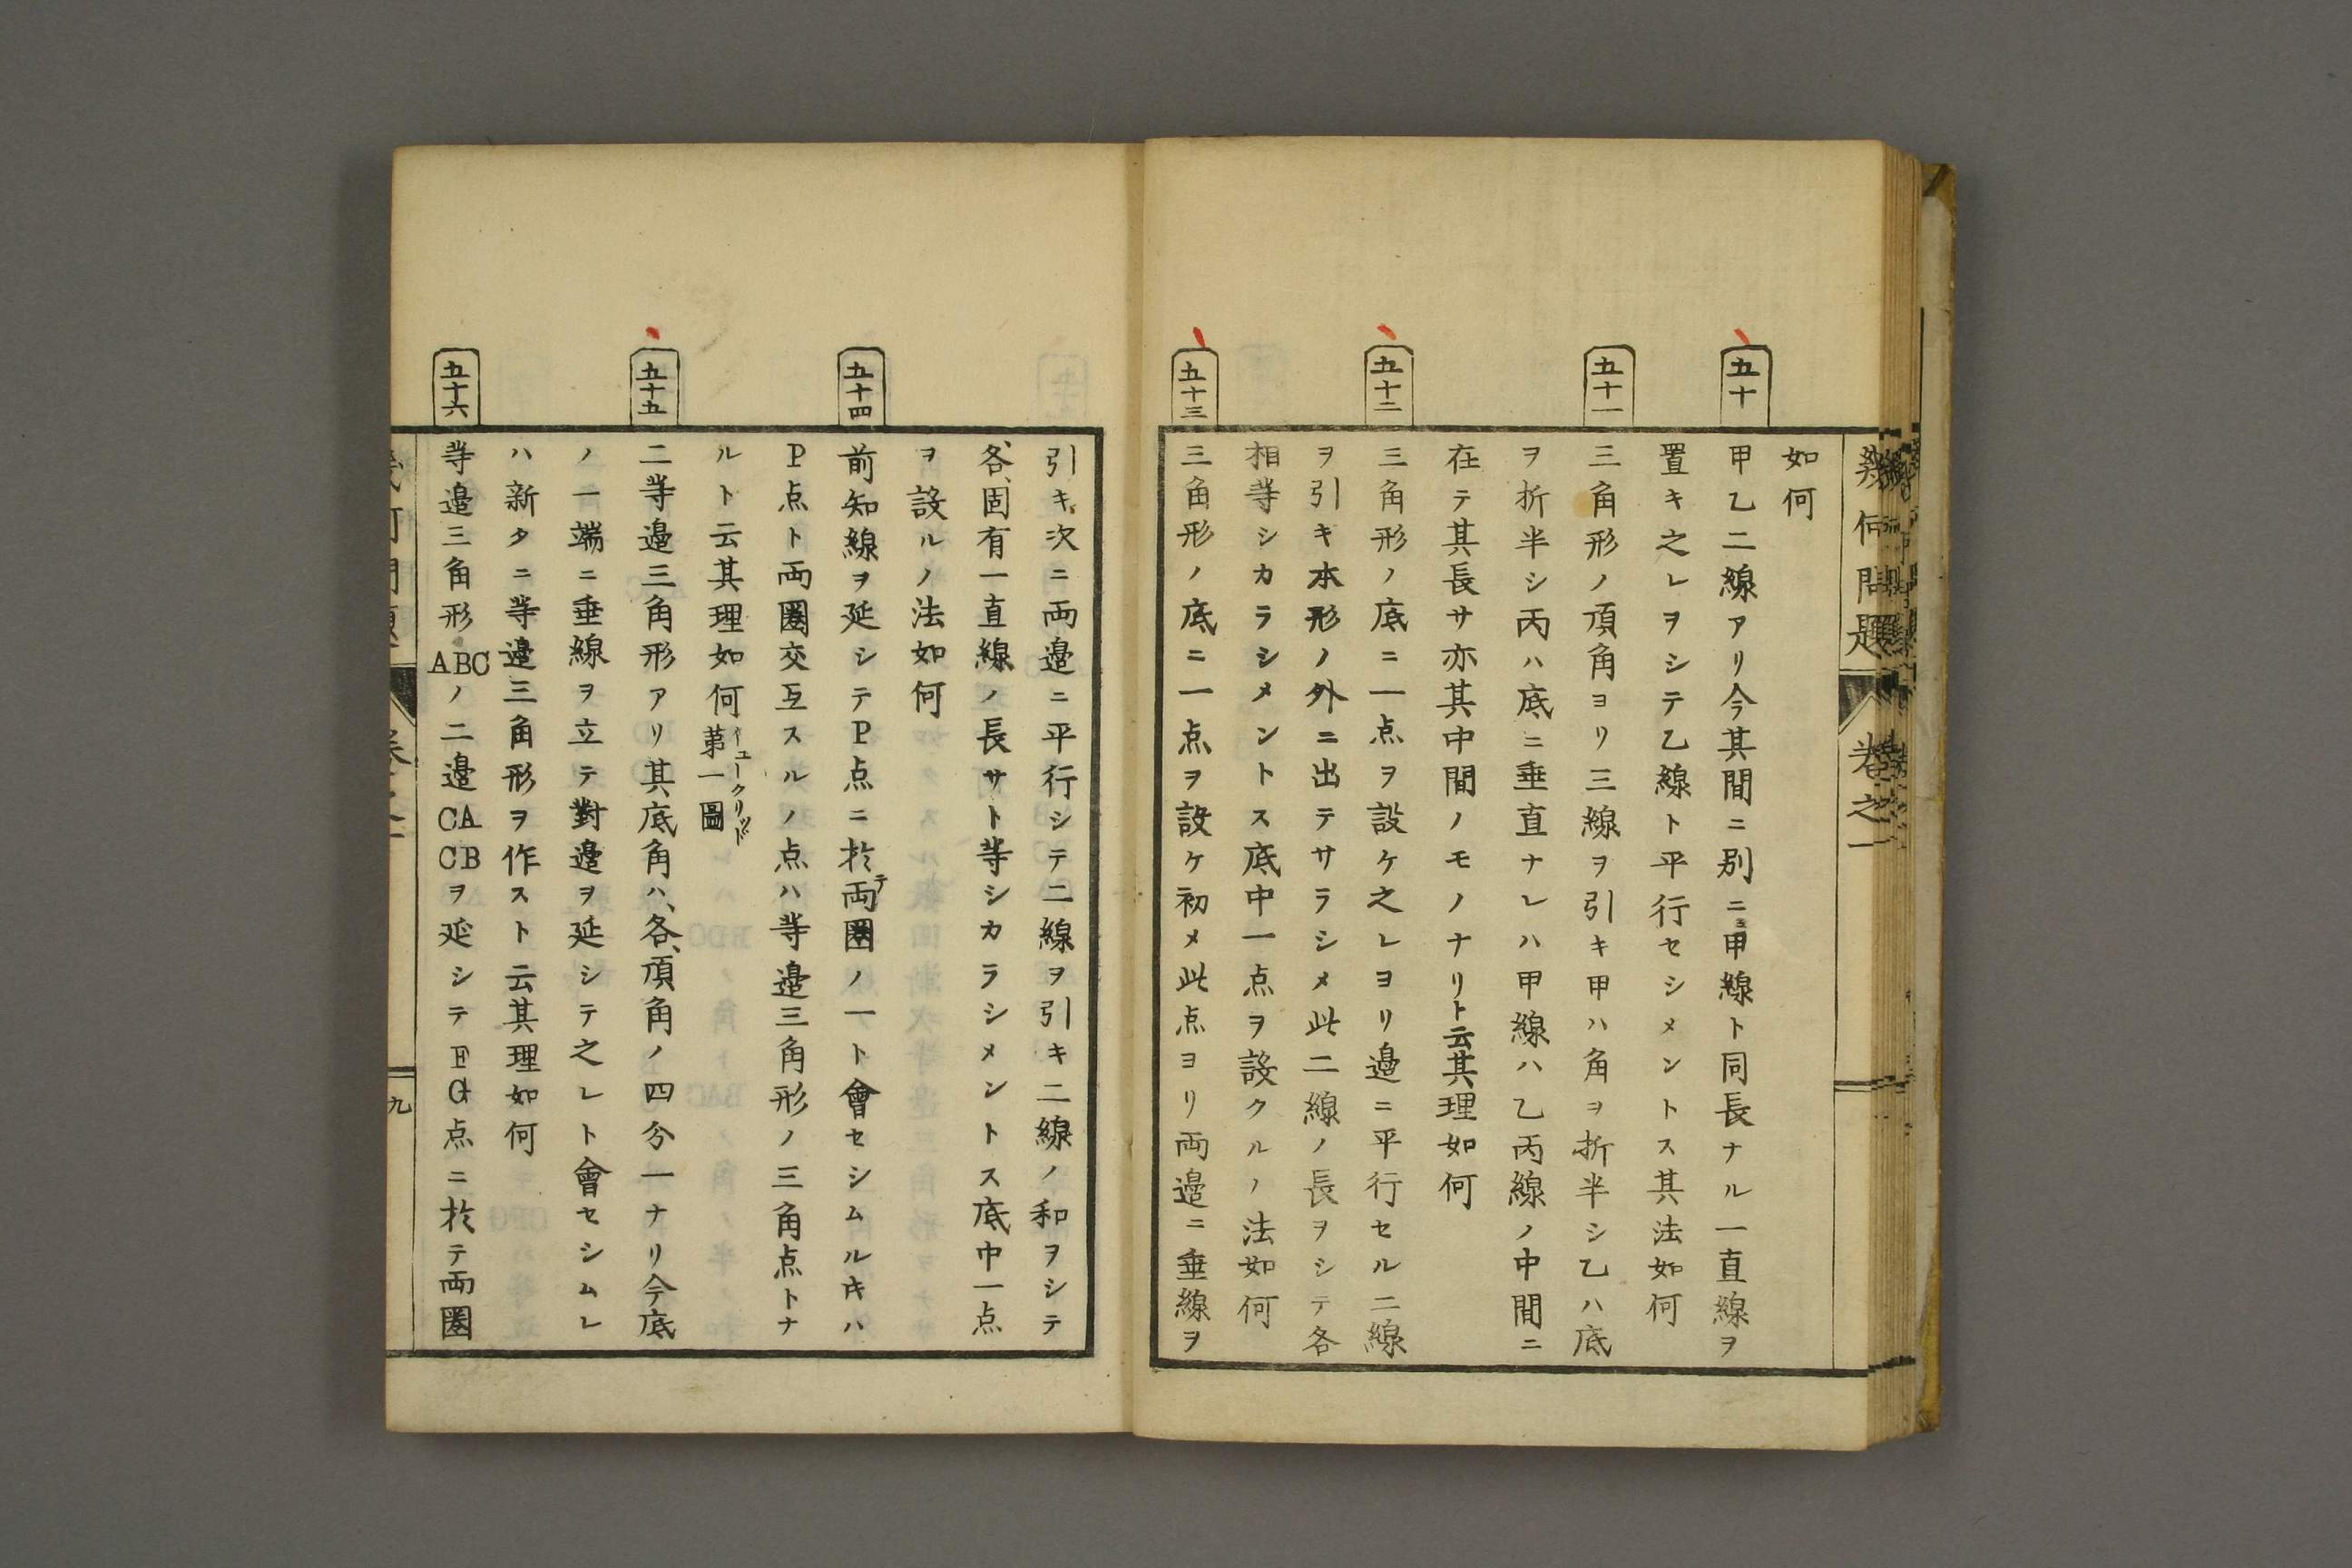 幾何問題 卷之一
如何
五十
甲乙二線アリ今其間ニ別ニ甲線ト同長ナル一直線ヲ
置キ之レヲシテ乙線ト平行セシメントス其法如何
五十一
三角形ノ頂角ヨリ三線ヲ引キ甲ハ角ヲ折半シ乙ハ底
ヲ折半シ丙ハ底ニ垂直ナレハ甲線ハ乙丙線ノ中間ニ
在テ其長サ亦其中間ノモノナリト云其理如何
五十二
三角形ノ底ニ一点ヲ設ケ之レヨリ邉ニ平行セル二線
ヲ引キ本形ノ外ニ出テサラシメ此二線ノ長ヲシテ各
相等シカラシメントス底中一点ヲ設クルノ法如何
五十三
三角形ノ底ニ一点ヲ設ケ初メ此点ヨリ両邉ニ垂線ヲ
引キ次ニ両邉ニ平行シテ二線ヲ引キ二線ノ和ヲシテ
各固有一直線ノ長サト等シカラシメントス底中一点
ヲ設ルノ法如何
五十四
前知線ヲ延シテP点ニ於テ両圏ノ一ト會セシムルキハ
P点ト両圏交互スルノ点ハ等邉三角形ノ三角点トナ
ルト云其理如何 イュークリッド第一圖
五十五
二等邉三角形アリ其底角ハ、各、頂角ノ四分一ナリ今底
ノ一端ニ垂線ヲ立テ對邉ヲ延シテ之レト會セシムレ
ハ新タニ等邉三角形ヲ作スト云其理如何
五十六
等邉三角形ABCノ二邉CACBヲ延シテFG点ニ於テ両圏
九